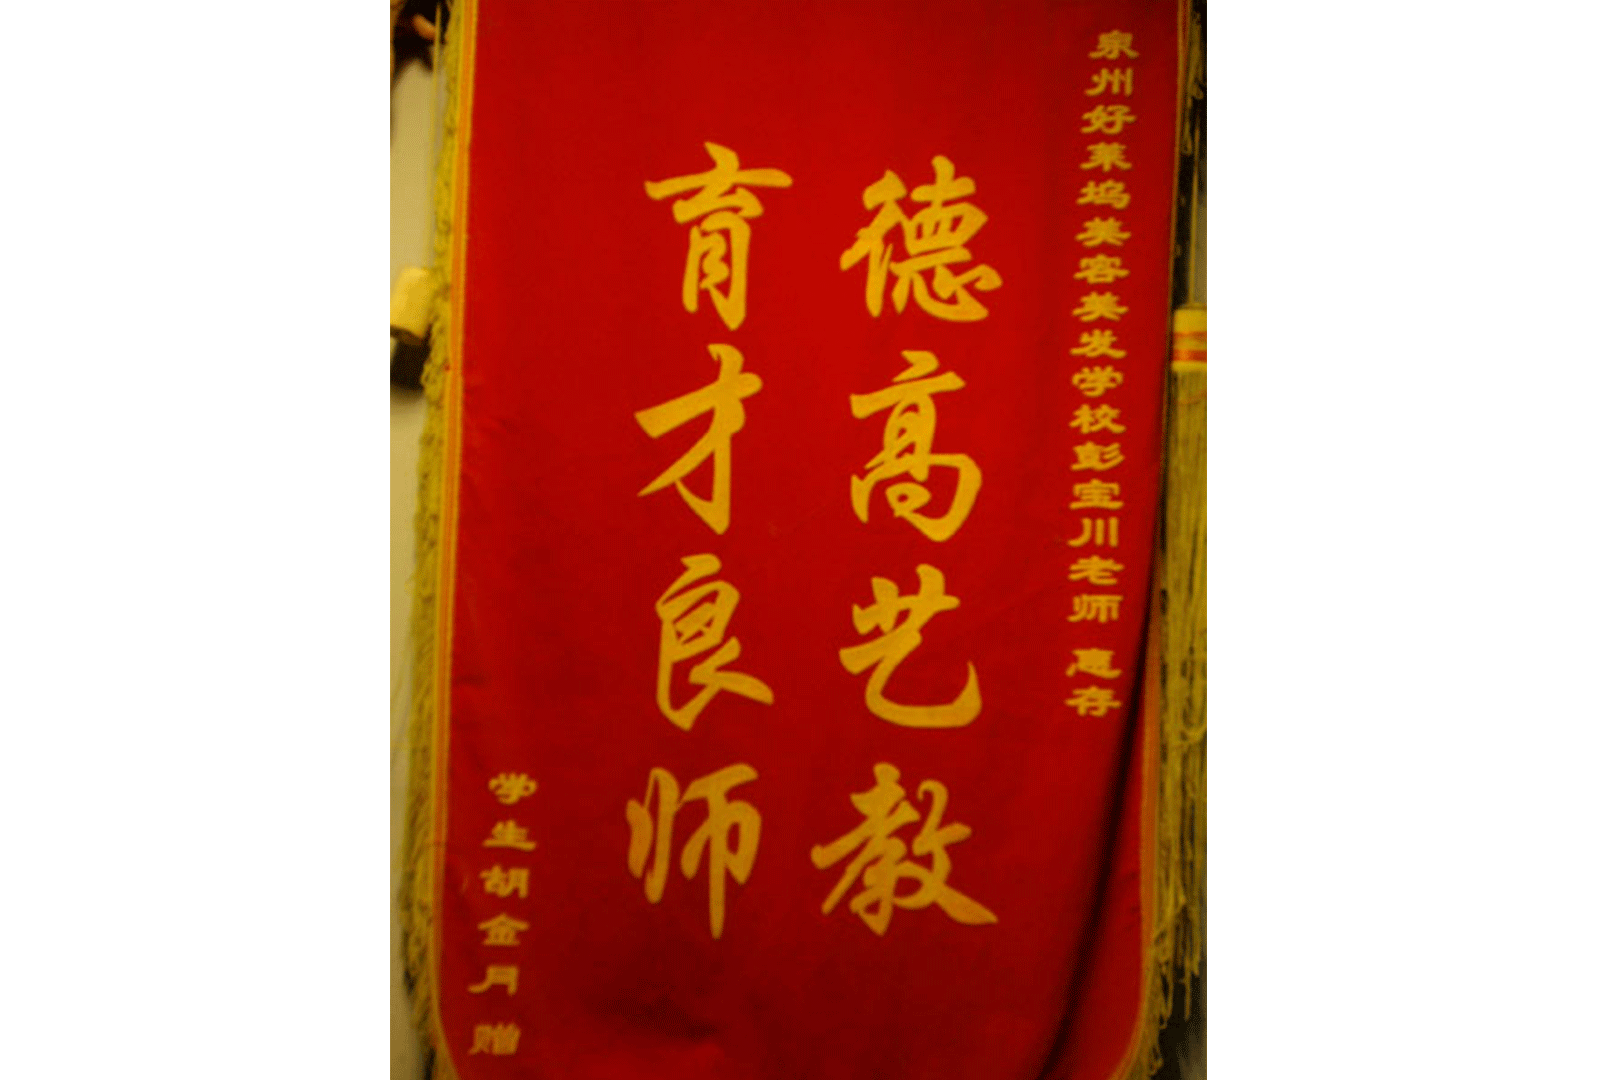 泉州好莱坞美容美发学校彭宝川老师 惠存
德高艺教
育才良师
学生胡金月 赠